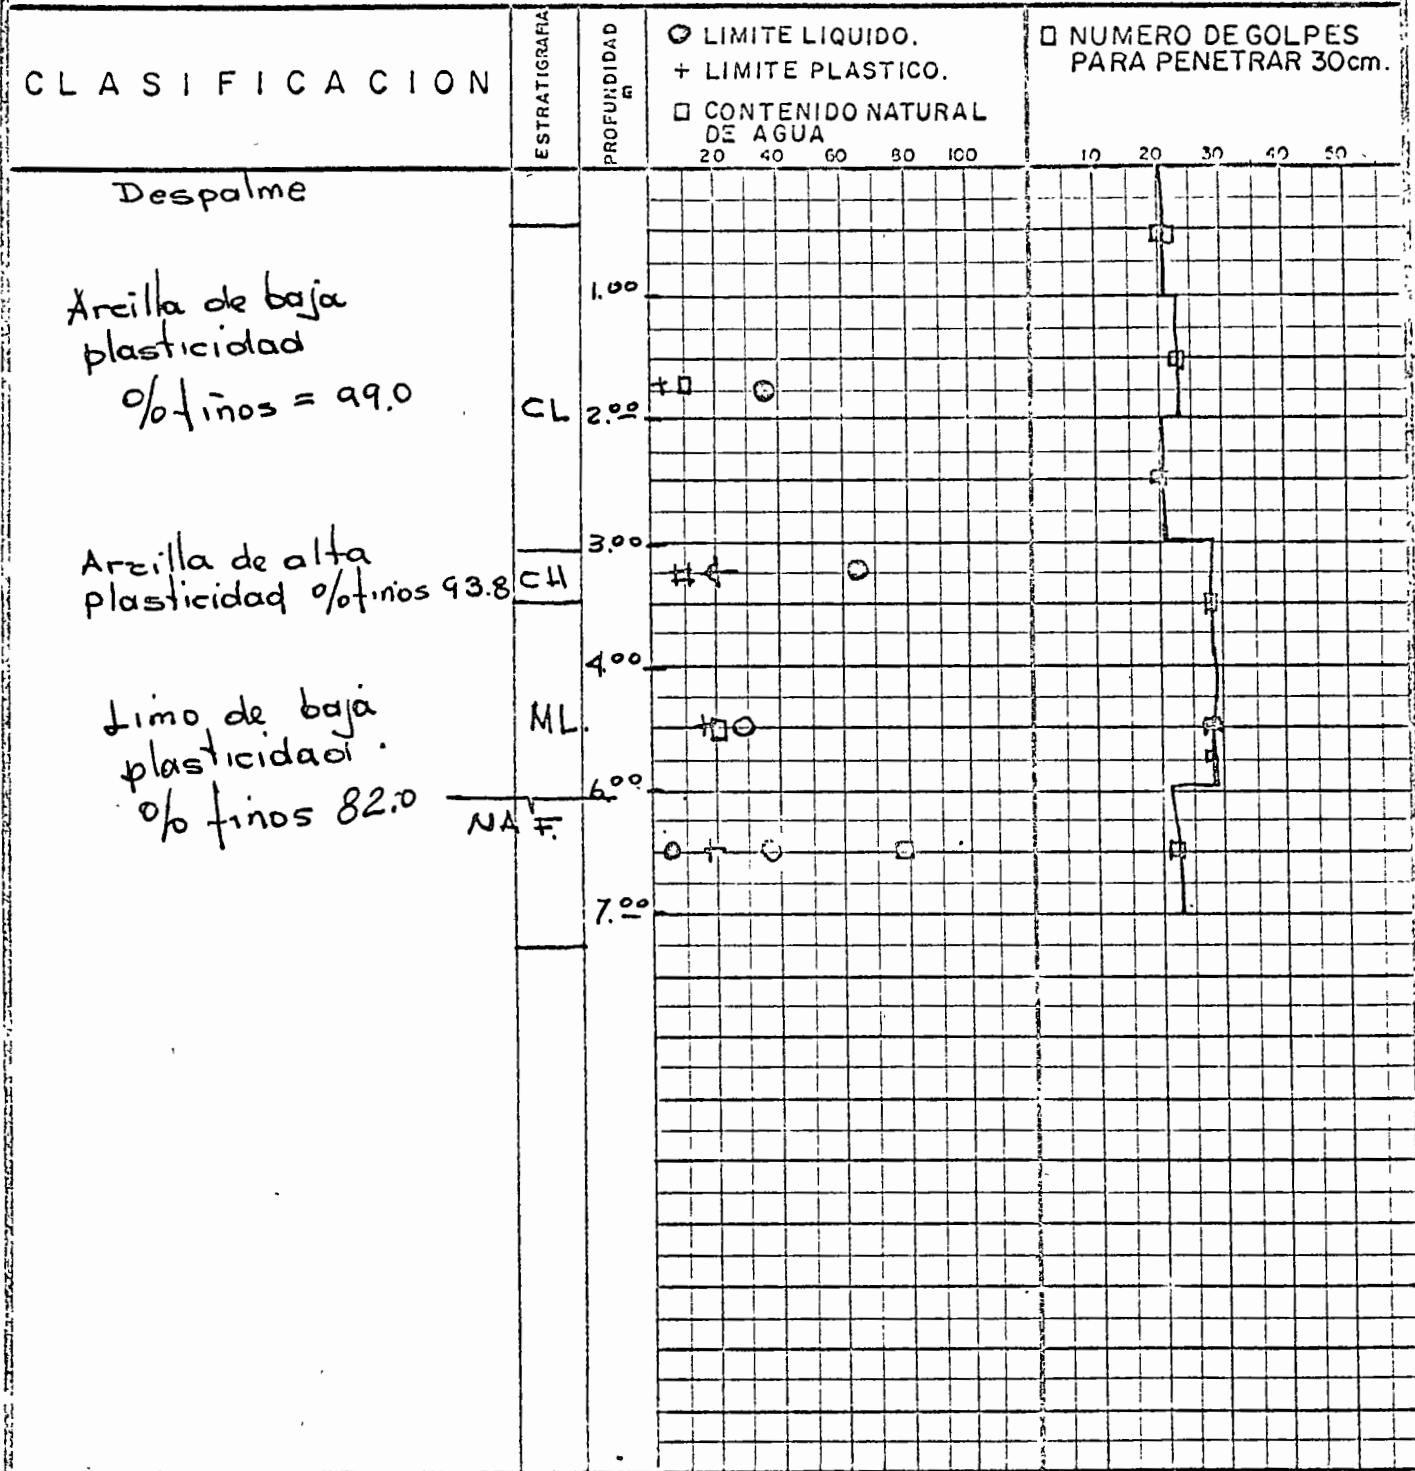 CLASIFICACION
ESTRATIGRAFIA
PROFUNDIDAD
m
O LIMITE LIQUIDO.
+ LIMITE PLASTICO.
□ CONTENIDO NATURAL
DE AGUA
20 40 60 80 100
□ NUMERO DE GOLPES
PARA PENETRAR 30cm.
10 20 30 40 50
Despalme
1.00
Arcilla de baja
plasticidad
% finos = 99.0
CL
2.00
3.00
Arcilla de alta
plasticidad % finos 93.8
CH
4.00
Limo de baja
plasticidad.
% finos 82.0
ML.
6.00
NAF.
7.00